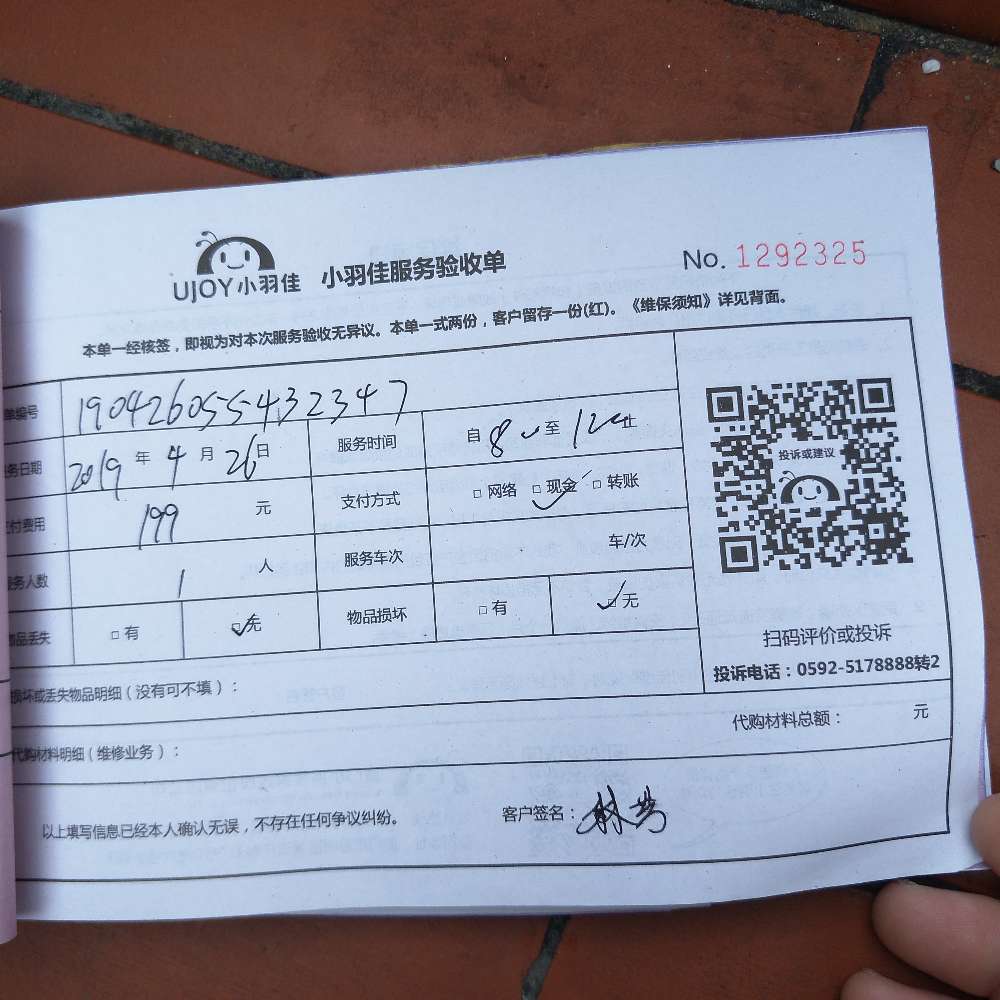 UJOY小羽佳 小羽佳服务验收单 No. 1292325
本单一经核签，即视为对本次服务验收无异议。本单一式两份，客户留存一份(红)。《维保须知》详见背面。
单编号 190426055432347
务日期 2019 年 4 月 26 日 服务时间 自 8 至 12 止
付费用 199 元 支付方式 □ 网络 □ 现金 □ 转账
务人数 1 人 服务车次 车/次
物品丢失 □ 有 □ 无 物品损坏 □ 有 □ 无
投诉或建议
扫码评价或投诉
投诉电话：0592-5178888转2
损坏或丢失物品明细（没有可不填）：
代购材料明细（维修业务）： 代购材料总额： 元
以上填写信息已经本人确认无误，不存在任何争议纠纷。 客户签名：林